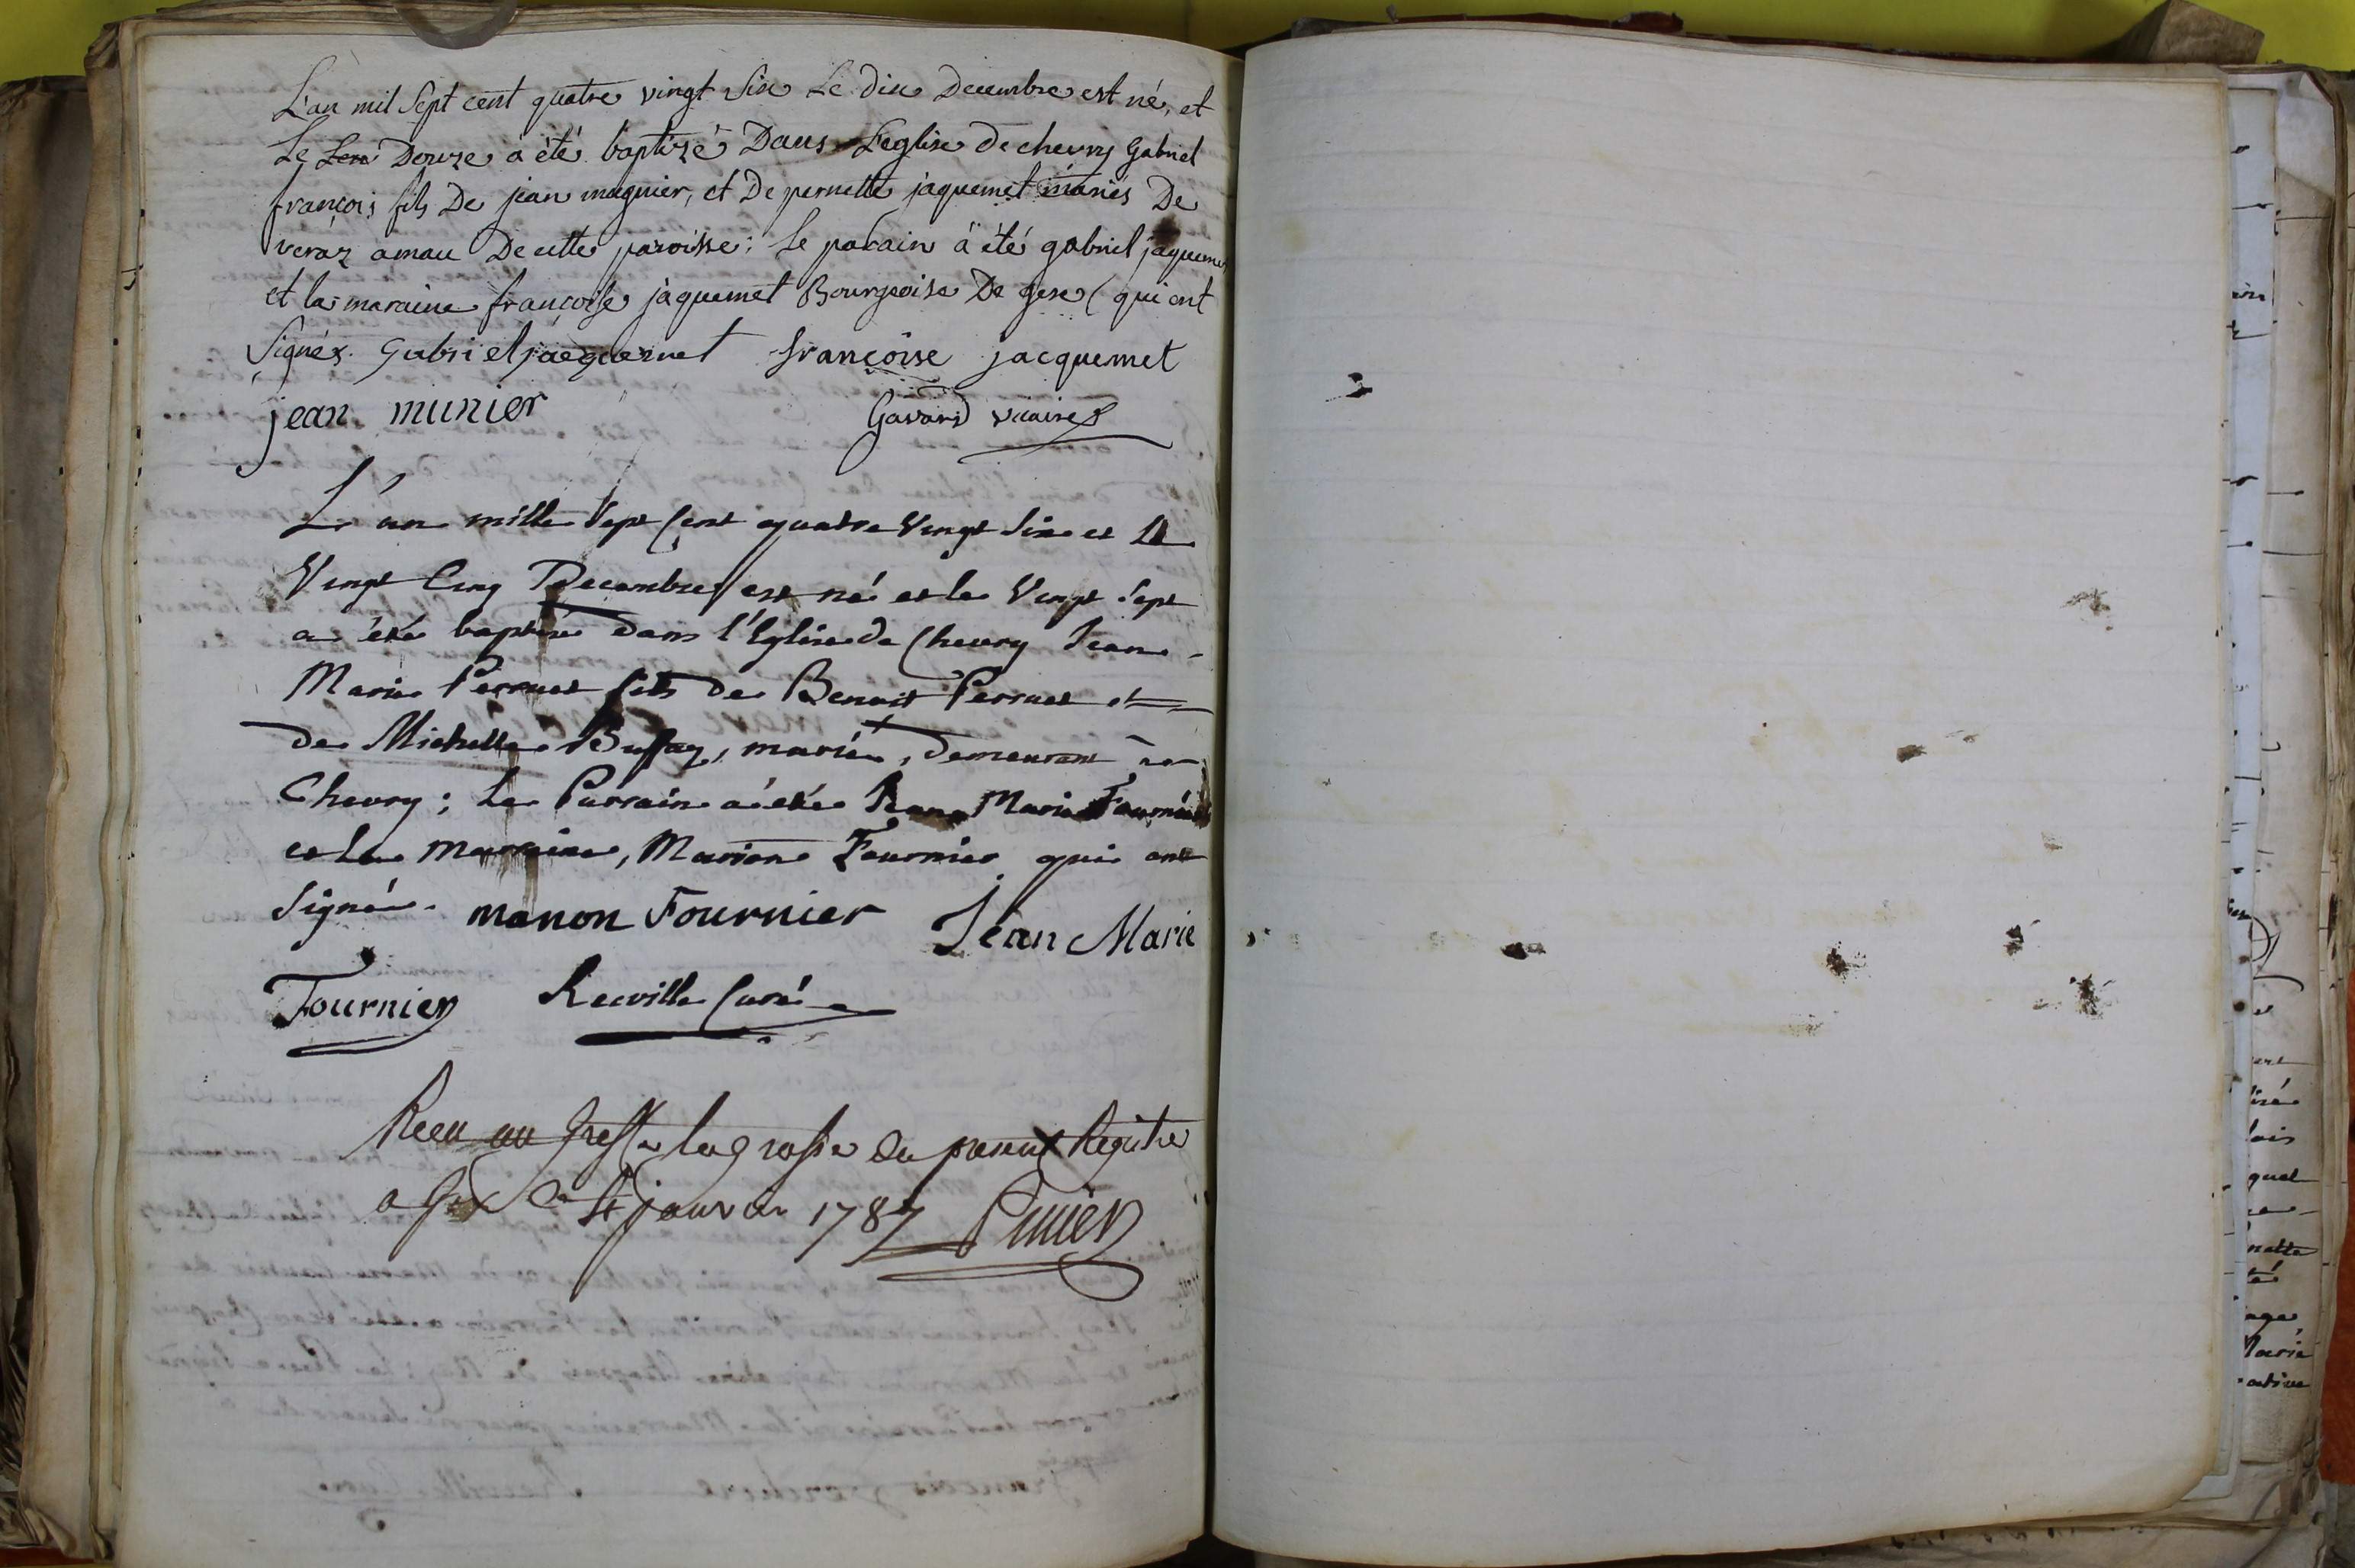 L'an mil Sept cent quatre vingt Six Le dix Decembre est né, et
Le Douze a été baptizé Dans L'eglise de chevry Gabriel
françois fils De jean magnier, et De pernette jaquemet mariés De
veraz amau De cette paroisse: Le parain a été gabriel jaquemet
et la maraine françoise jaquemet Bourgeoise De gex (qui ont
Signés. Gabriel jacquemet françoise jacquemet
jean munier Gavard vicaire
L'an mille Sept Cent quatre Vingt Six et le
Vingt Cinq Decembre est né et le Vingt Sept
a été baptisé dans l'Eglise de Chevry Jean-
Marie Perruet fils de Benoit Perruet et
de Michelle Buffay, mariés, demeurant à
Chevry; Le Parrain a été Jean Marie Fournier
et la Marraine, Marion Fournier qui ont
Signé. manon Fournier Jean Marie
Fournier Recville Curé
Receu au Greffe la grosse du present Registre
a Gex le 4 janvier 1787